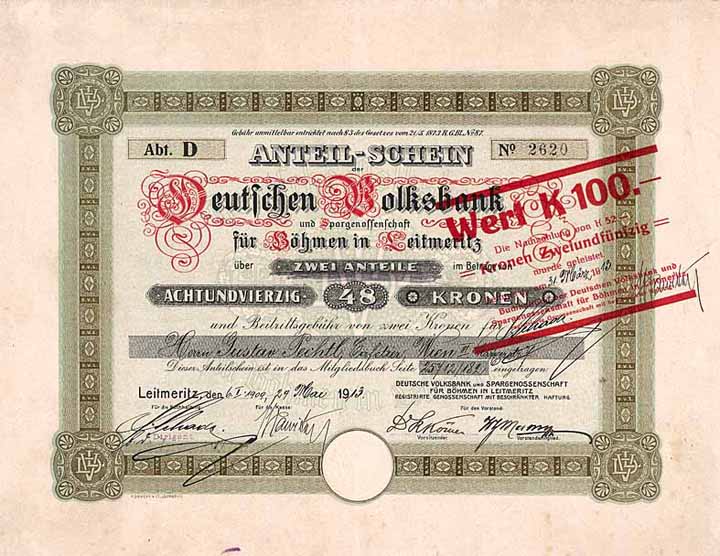 Gebühr unmittelbar entrichtet nach § 3 des Gesetzes vom 21./5. 1873 R.G.Bl. No 87.
Abt. D
ANTEIL-SCHEIN
No 2620
der
Deutschen Volksbank
und Spargenossenschaft
für Böhmen in Leitmeritz
über ZWEI ANTEILE im Betrage von
ACHTUNDVIERZIG 48 KRONEN
und Beitrittsgebühr von zwei Kronen für
Herrn Gustav Wien II
Dieser Anteilschein ist in das Mitgliedsbuch Seite eingetragen
Leitmeritz, den 29 Mai 1913
DEUTSCHE VOLKSBANK und SPARGENOSSENSCHAFT
FÜR BÖHMEN IN LEITMERITZ
REGISTRIRTE GENOSSENSCHAFT MIT BESCHRÄNKTER HAFTUNG.
Für die Buchhaltung:
Für die Kasse:
Für den Vorstand:
Dirigent
Vorsitzender
Vorstandsmitglied.
Wert K 100.-
Die Nachzahlung von K 52.-
Kronen Zweiundfünfzig
wurde geleistet
31. März 1913
Buchhaltung der Deutschen Volksbank und
Spargenossenschaft für Böhmen